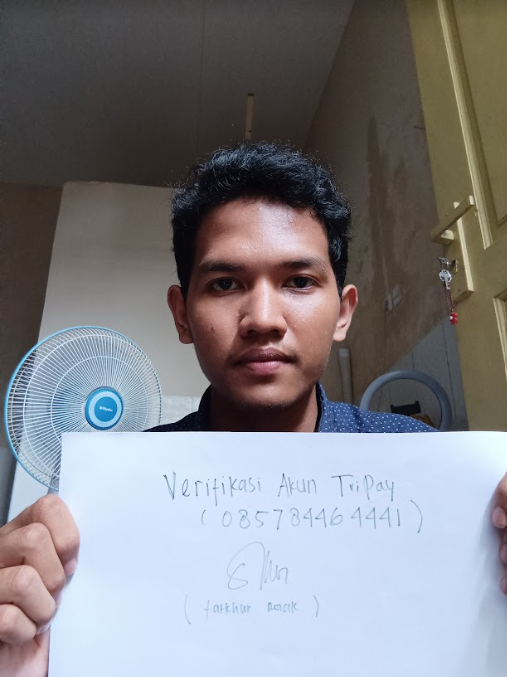 Verifikasi Akun TriPay
(085784464441)
( farkhur )